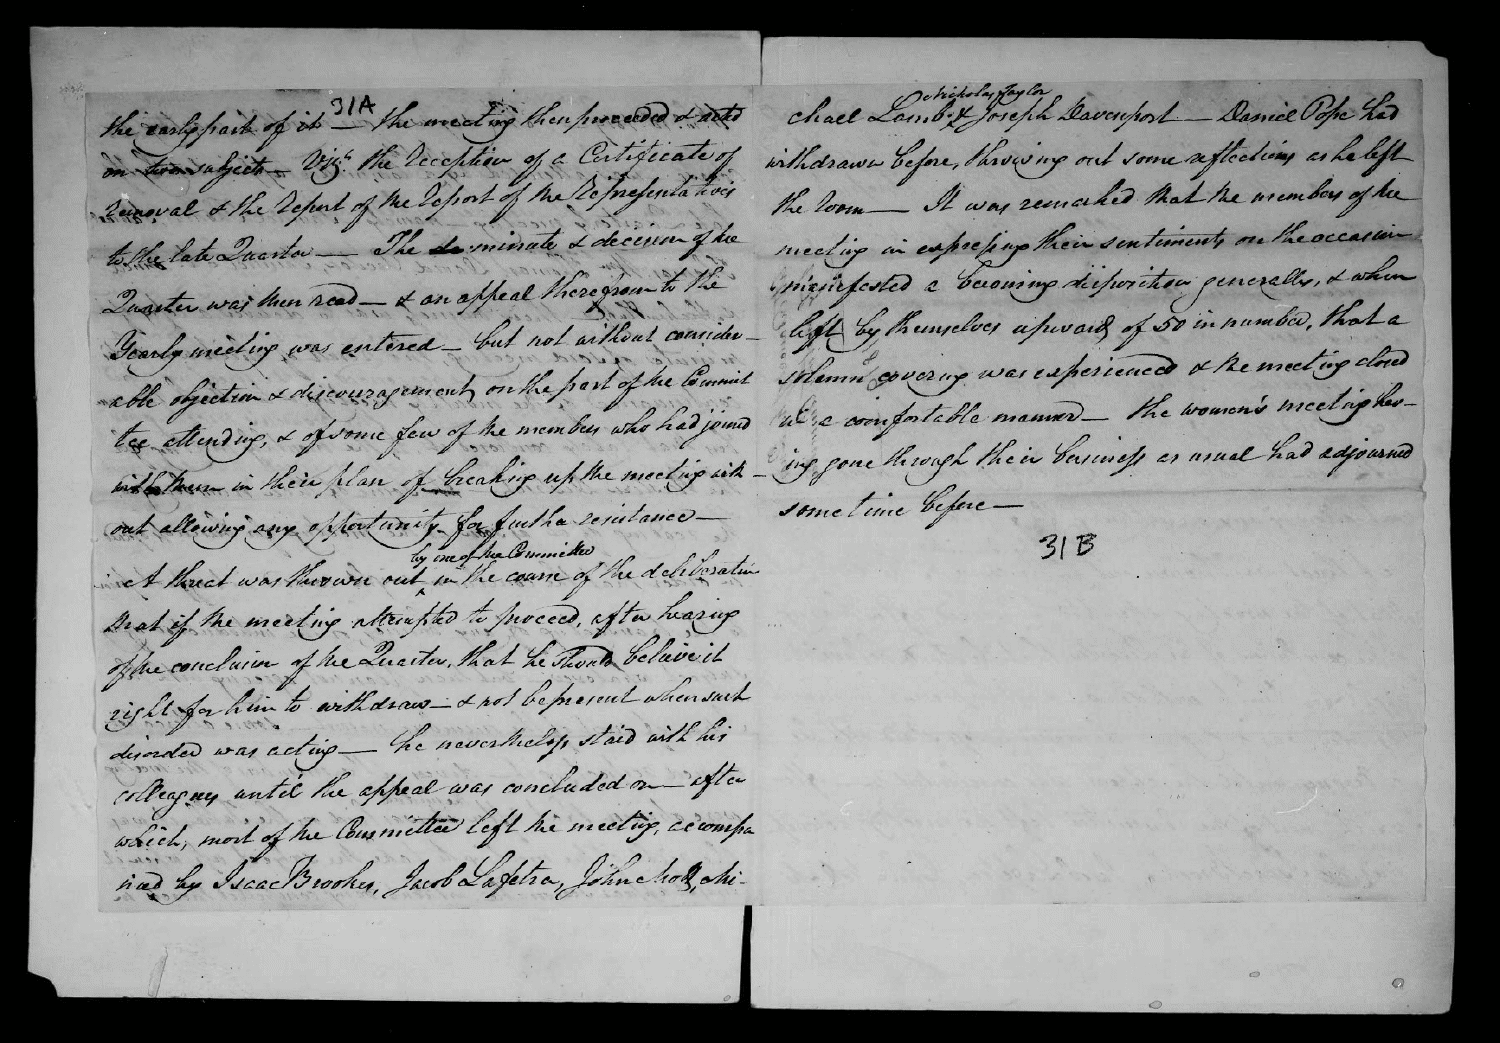 31A
the early part of it — the meeting then proceeded & acted
on two subjects — Vizt. the reception of a Certificate of
removal & the Report of the Report of the Representatives
to the late Quarter — The minute & decision of the
Quarter was then read — & an appeal therefrom to the
Yearly meeting was entered — but not without consider-
able objection & discouragement, on the part of the Commit
tee attending, & of some few of the members who had joined
with them in their plan of breaking up the meeting with-
out allowing any opportunity for further resistance —
by one of the Committee
A threat was thrown out in the course of the deliberation
that if the meeting attempted to proceed, after hearing
of the conclusion of the Quarter, that he should believe it
right for him to withdraw — & not be present when such
disorder was acting — he nevertheless staid with his
colleagues until the appeal was concluded on — after
which, most of the Committee left the meeting, accompa
nied by Isaac Brookes, Jacob Lafetra, John Mott, Mi-
Nicholas Taylor
chael Lamb & Joseph Davenport — Daniel Pope had
withdrawn before, throwing out some reflections as he left
the room — It was remarked that the members of the
meeting in expressing their sentiments on the occasion
manifested a becoming disposition generally, & when
left by themselves upwards of 50 in number, that a
solemn covering was experienced & the meeting closed
in a comfortable manner — the women's meeting hav-
ing gone through their business as usual had adjourned
sometime before —
31B